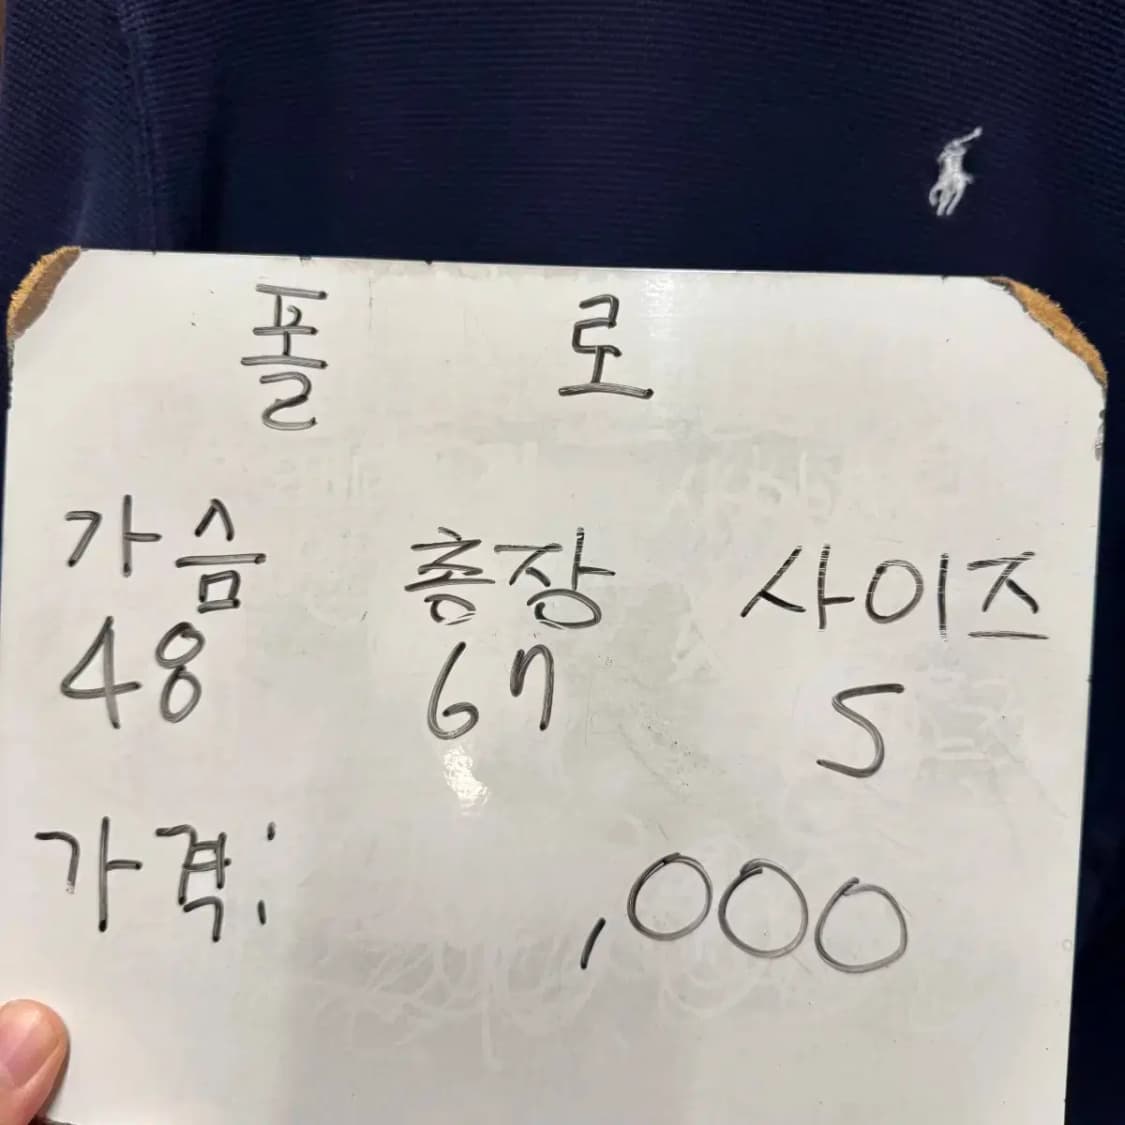 폴 로
가슴 총장 사이즈
48 67 S
가격: ,000